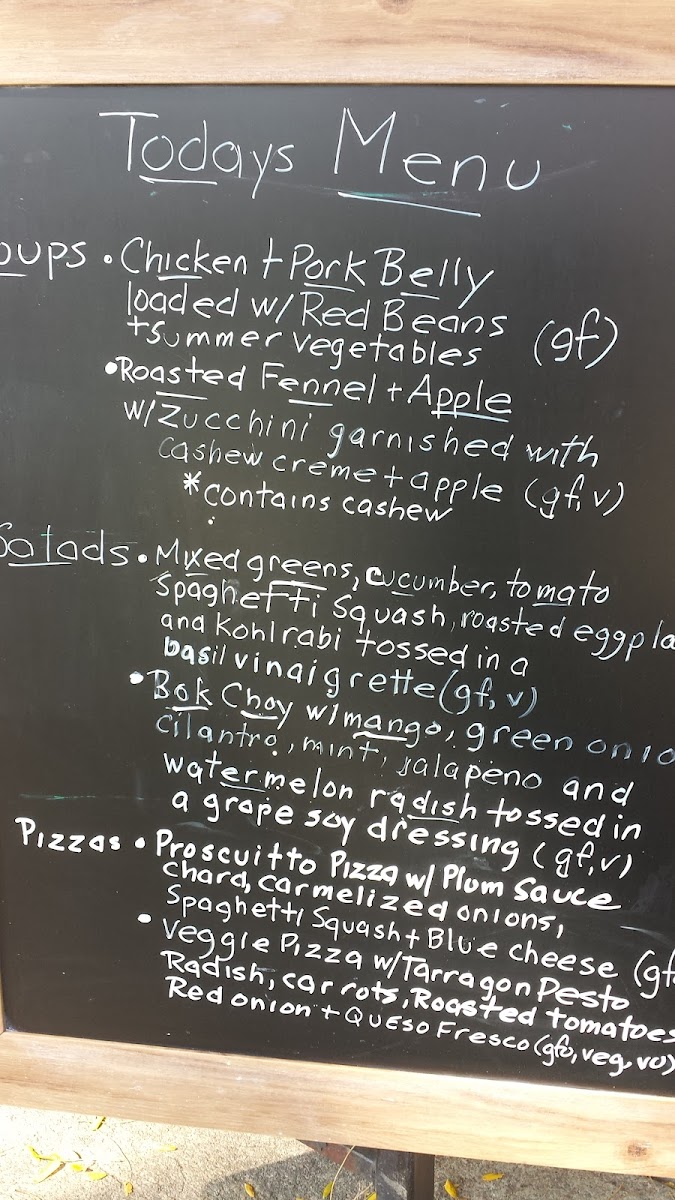 Todays Menu
oups • Chicken + Pork Belly
loaded w/ Red Beans
+ summer vegetables (gf)
• Roasted Fennel + Apple
w/ Zucchini garnished with
cashew creme + apple (gf, v)
* contains cashew
Salads • Mixed greens, cucumber, tomato
Spaghetti Squash, roasted eggpla
and Kohlrabi tossed in a
basil vinaigrette (gf, v)
• Bok Choy w/ mango, green onio
cilantro, mint, jalapeno and
watermelon radish tossed in
a grape soy dressing (gf, v)
Pizzas • Proscuitto Pizza w/ Plum Sauce
chard, carmelized onions,
Spaghetti Squash + Blue cheese (gf
• Veggie Pizza w/ Tarragon Pesto
Radish, carrots, Roasted tomatoes
Red onion + Queso Fresco (gfo, veg, vo)